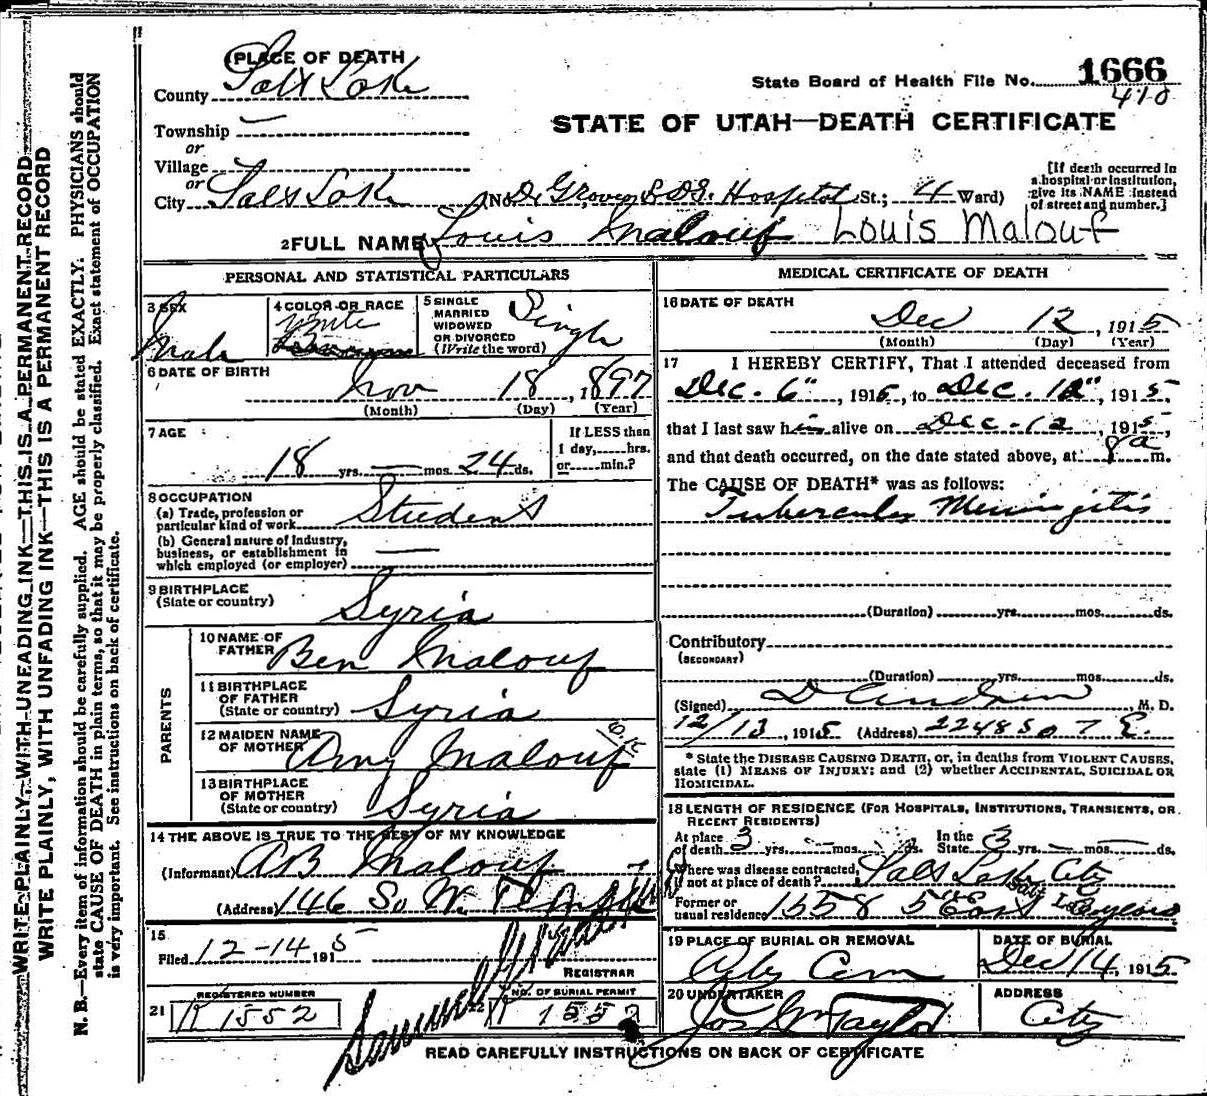 PLACE OF DEATH
County Salt Lake
Township —
or
Village
or
City Salt Lake (No. Dr Groves L D S. Hospital St.; 4 Ward)
State Board of Health File No. 1666
410
STATE OF UTAH—DEATH CERTIFICATE
[If death occurred in
a hospital or institution,
give its NAME instead
of street and number.]
2 FULL NAME Louis Malouf Louis Malouf
PERSONAL AND STATISTICAL PARTICULARS
3 SEX
Male
4 COLOR OR RACE
White
5 SINGLE
MARRIED
WIDOWED
OR DIVORCED
(Write the word)
Single
6 DATE OF BIRTH
Nov 18, 1897
(Month) (Day) (Year)
7 AGE
18 yrs. — mos. 24 ds.
If LESS than
1 day,......hrs.
or......min.?
8 OCCUPATION
(a) Trade, profession or
particular kind of work Student
(b) General nature of Industry,
business, or establishment in
which employed (or employer) —
9 BIRTHPLACE
(State or country) Syria
PARENTS
10 NAME OF
FATHER Ben Malouf
11 BIRTHPLACE
OF FATHER
(State or country) Syria
12 MAIDEN NAME
OF MOTHER Amy Malouf
13 BIRTHPLACE
OF MOTHER
(State or country) Syria
14 THE ABOVE IS TRUE TO THE BEST OF MY KNOWLEDGE
(Informant) A B Malouf
(Address) 146 So W. Temple
15
Filed 12-14 1915
REGISTRAR
21 REGISTERED NUMBER
R 1552
22 NO. OF BURIAL PERMIT
R 1552
MEDICAL CERTIFICATE OF DEATH
16 DATE OF DEATH
Dec 12, 1915
(Month) (Day) (Year)
17 I HEREBY CERTIFY, That I attended deceased from
Dec. 6", 1915, to Dec. 12", 1915,
that I last saw him alive on Dec. 12, 1915,
and that death occurred, on the date stated above, at 8 a m.
The CAUSE OF DEATH* was as follows:
Tubercular Meningitis
(Duration) yrs. mos. ds.
Contributory
(SECONDARY)
(Duration) yrs. mos. ds.
(Signed) M. D.
12/13, 1915 (Address) 2248 So 7 E.
* State the DISEASE CAUSING DEATH, or, in deaths from VIOLENT CAUSES,
state (1) MEANS OF INJURY; and (2) whether ACCIDENTAL, SUICIDAL OR
HOMICIDAL.
18 LENGTH OF RESIDENCE (FOR HOSPITALS, INSTITUTIONS, TRANSIENTS, OR
RECENT RESIDENTS)
At place
of death 3 yrs. — mos. ds.
In the
State 3 yrs. — mos. — ds.
Where was disease contracted,
if not at place of death? Salt Lake City
Former or
usual residence 1558 5 East
19 PLACE OF BURIAL OR REMOVAL
City Cem
DATE OF BURIAL
Dec 14, 1915
20 UNDERTAKER
Jos Wm Taylor
ADDRESS
City
READ CAREFULLY INSTRUCTIONS ON BACK OF CERTIFICATE
WRITE PLAINLY WITH UNFADING INK—THIS IS A PERMANENT RECORD
WRITE PLAINLY, WITH UNFADING INK—THIS IS A PERMANENT RECORD
N. B.—Every item of information should be carefully supplied. AGE should be stated EXACTLY. PHYSICIANS should
state CAUSE OF DEATH in plain terms, so that it may be properly classified. Exact statement of OCCUPATION
is very important. See instructions on back of certificate.